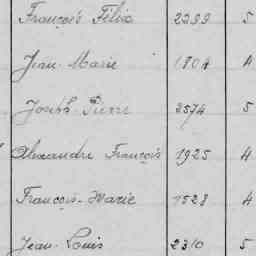 François Félix 2299 5
Jean-Marie 1804 4
Joseph Pierre 2574 5
Alexandre François 1925 4
François-Marie 1528 4
Jean-Louis 2310 5